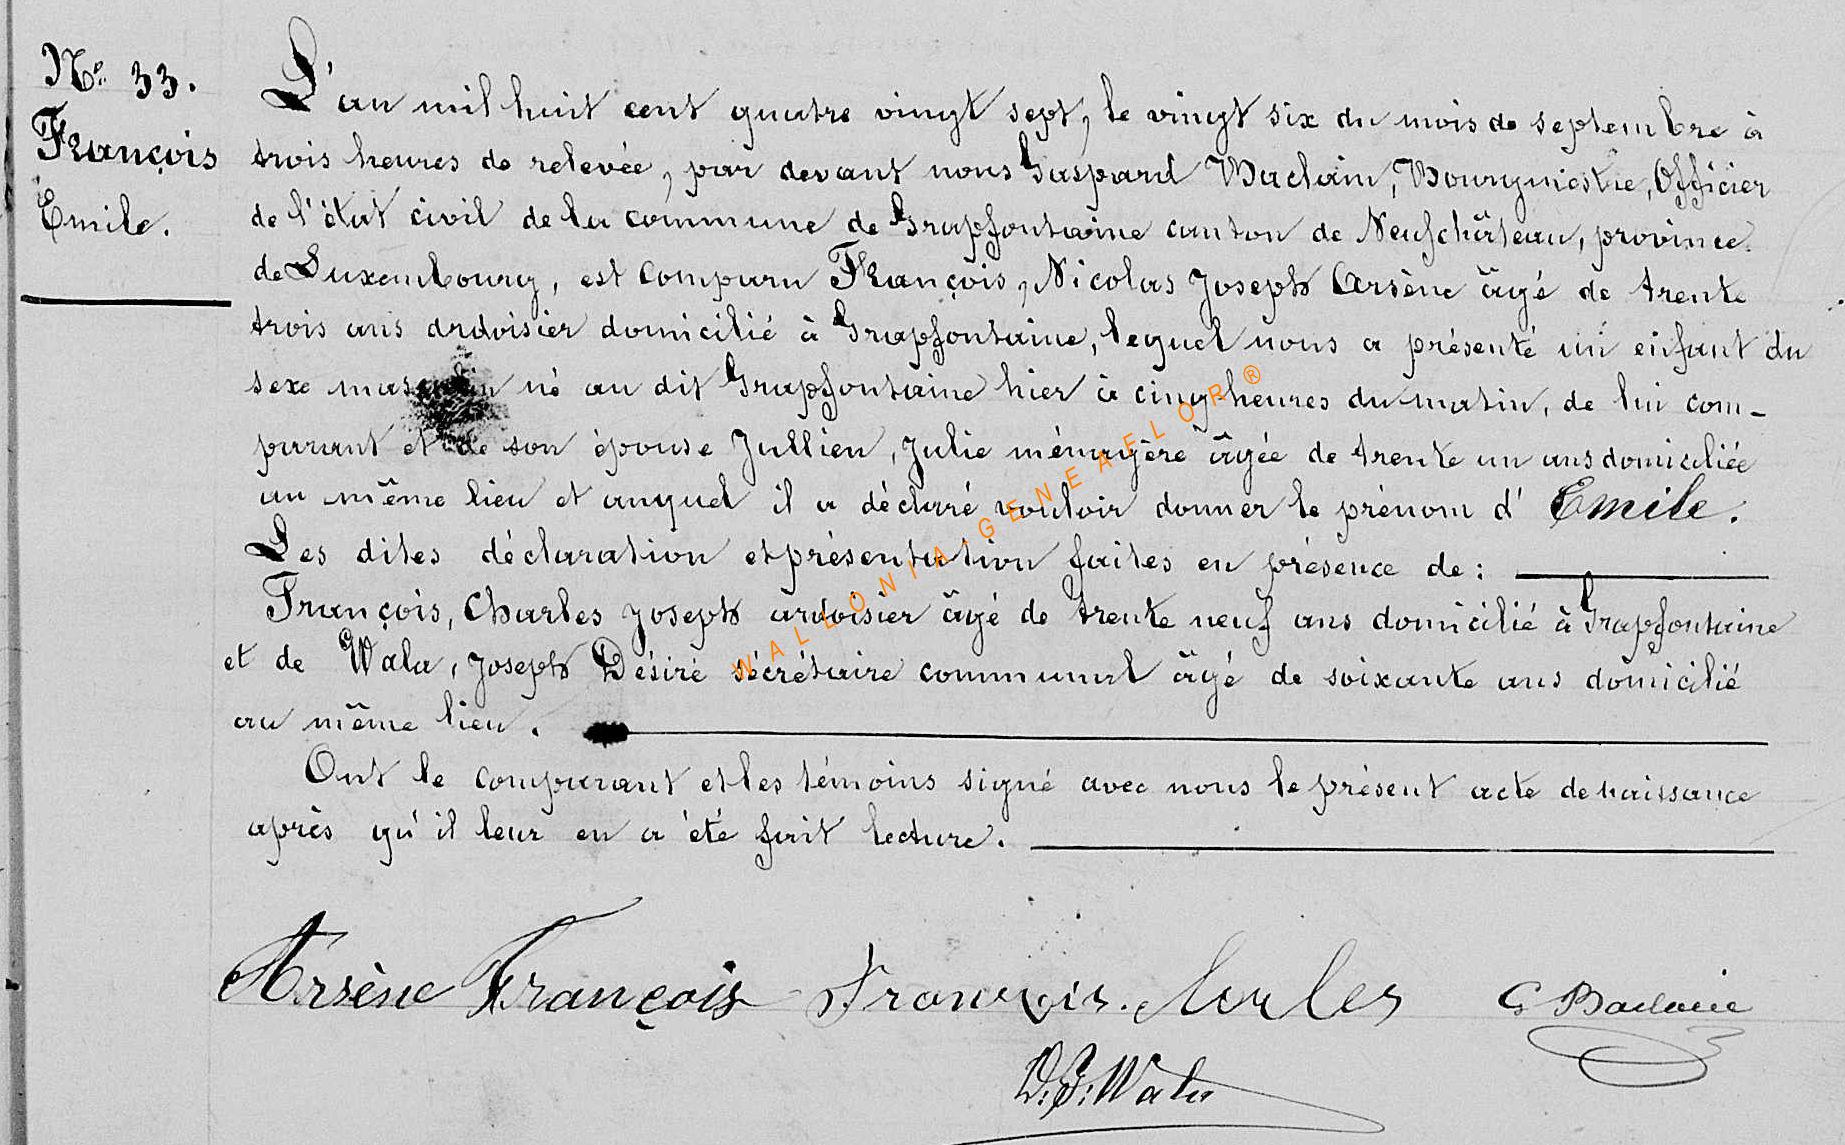 N° 33.
François
Emile.
L'an mil huit cent quatre vingt sept, le vingt six du mois de septembre à
trois heures de relevée, par devant nous Gaspard Baclain, Bourgmestre, Officier
de l'état civil de la commune de Grapfontaine canton de Neufchâteau, province
de Luxembourg, est comparu François, Nicolas Joseph Arsène âgé de trente
trois ans ardoisier domicilié à Grapfontaine, lequel nous a présenté un enfant du
sexe masculin né au dit Grapfontaine hier à cinq heures du matin, de lui com-
parant et de son épouse Jullien, Julie ménagère âgée de trente un ans domiciliée
au même lieu et auquel il a déclaré vouloir donner le prénom d' Emile.
Les dites déclaration et présentation faites en présence de :
François, Charles Joseph ardoisier âgé de trente neuf ans domicilié à Grapfontaine
et de Wala, Joseph Désiré sécrétaire communal âgé de soixante ans domicilié
au même lieu.
Ont le comparant et les témoins signé avec nous le présent acte de naissance
après qu'il leur en a été fait lecture.
Arsène François François. Charles G Baclain
D. J. Wala
WALLONIA-GENEAELOR®